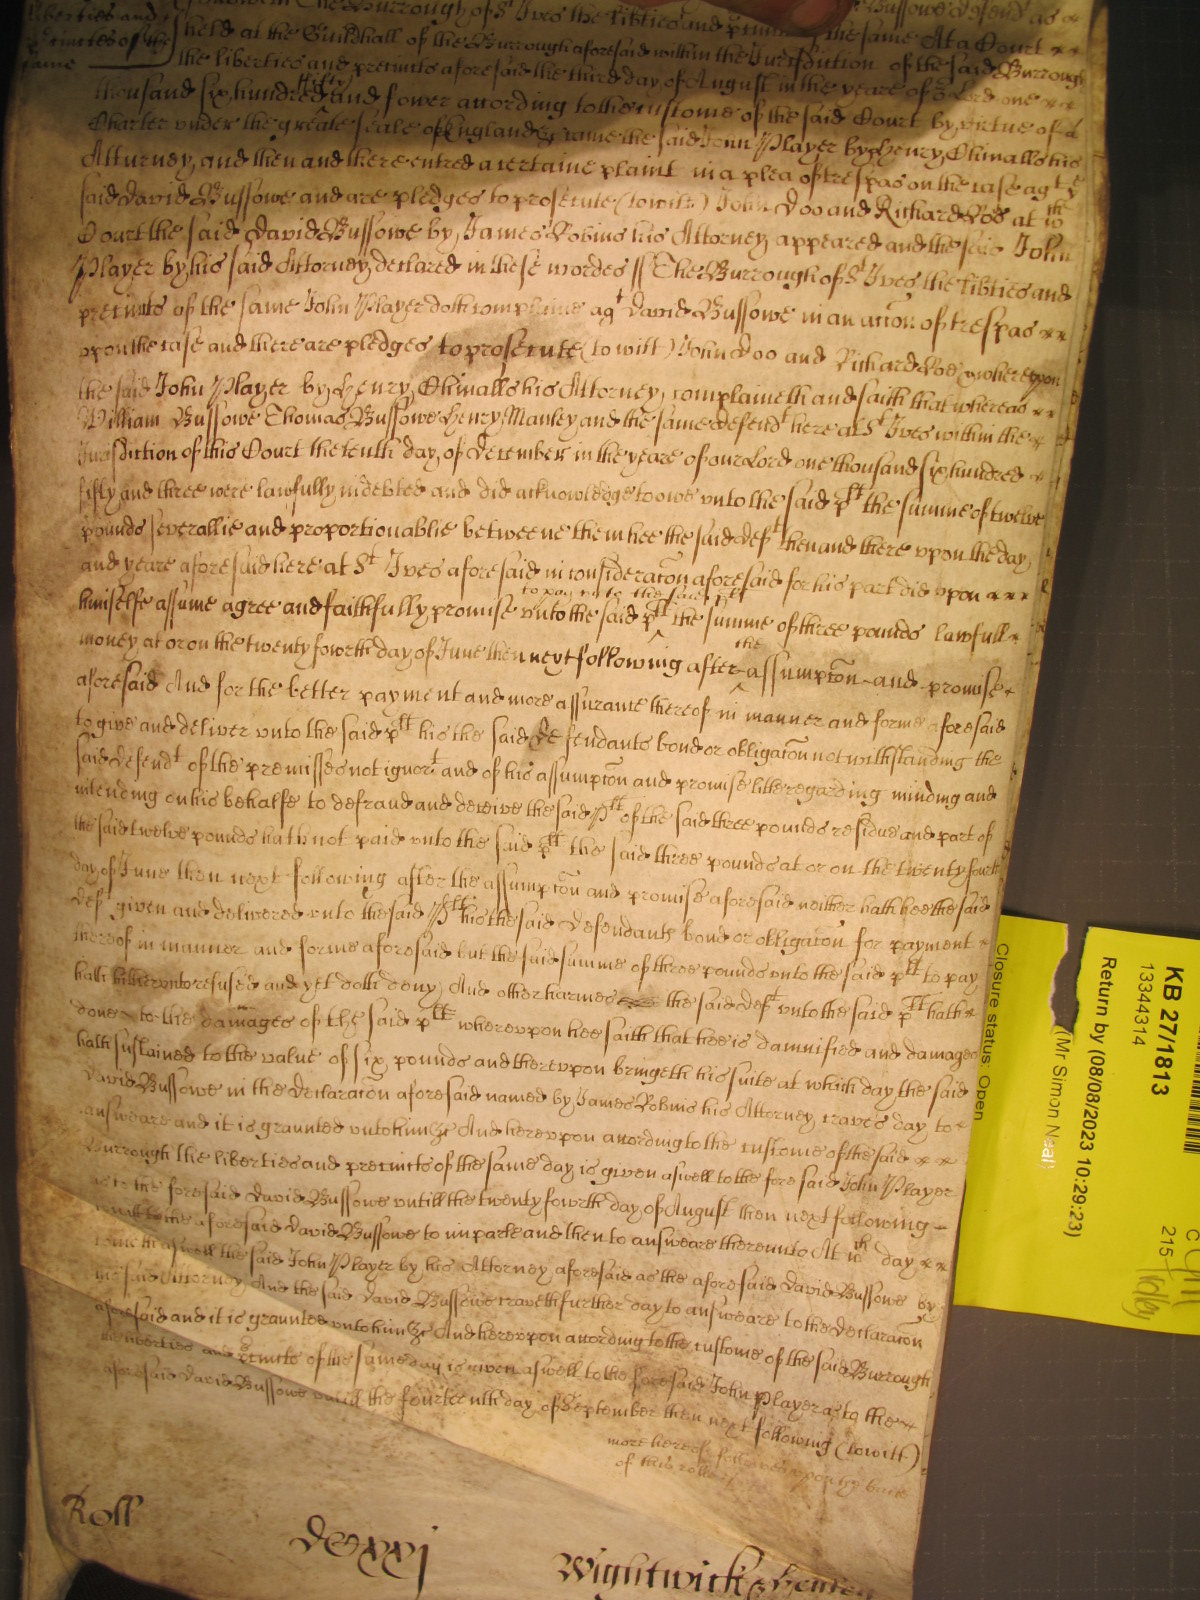 liberties and
precincts of the
same
Burrough of St Ives the libties and precincts the same At a Court
held at the Guildhall of the Burrough aforesaid within the Jurisdiction of the said Burrough
the liberties and precincts aforesaid the third day of August in the yeare of or Lord one
thousand six hundred fifty and fower according to the custome of the said Court by virtue of a
Charter under the greate seale of England &c came the said John Player by Henry his
Atturney and then and there entred a certaine plaint in a plea of trespas on the case agt ye
said David Bussowe and are pledges to prosecute (to witt) John Doo and Richard Roo at wch
Court the said David Bussowe by James Robins his Attorney appeared and the said John
Player by his said Attorney declared in these wordes ss The Burrough of St Ives the libties and
precincts of the same John Player doth complaine agt David Bussowe in an accon of trespas
upon the case and there are pledges to prosecute (to witt) John Doo and Richard Roe wherevpon
the said John Player by Henry his Attorney complaineth and saith that whereas
William Bussowe Thomas Bussowe Henry Manley and the same defendt here at St Ives within the
Jurisdiction of this Court the tenth day of December in the yeare of our Lord one thousand six hundred
fifty and three were lawfully indebted and did acknowledge to owe vnto the said plt the summe of twelve
pounds severallie and proportionablie betweene them hee the said deft then and there vpon the day
and yeare aforesaid here at St Ives aforesaid in consideracon aforesaid for his part did vpon
to pay vnto the said plt
himselfe assume agree and faithfully promise vnto the said plt the summe of three pounds lawfull
money at or on the twenty fowrth day of June then next following after the assumpcon and promise
aforesaid And for the better payment and more assurance thereof in manner and forme aforesaid
to give and deliver vnto the said plt his the said Defendants bond or obligacon notwithstanding the
said defendt of the premisses not ignort and of his assumpcon and promise litle regarding minding and
intending on his behalfe to defraud and deceive the said plt of the said three pounds residue and part of
the said twelve pounds hath not paid vnto the said plt the said three pounds at or on the twenty fourth
day of June then next following after the assumpcon and promise aforesaid neither hath hee the said
deft given and delivered vnto the said plt his the said Defendants bond or obligacon for payment
thereof in manner and forme aforesaid but the said summe of three pounds vnto the said plt to pay
hath hitherunto refused and yet doth deny And other harmes the said deft vnto the said plt hath
done to the damages of the said plt wherevpon hee saith that hee is damnified and damage
hath sustained to the value of six pounds and therevpon bringeth his suite at which day the said
David Bussowe in the declaracon aforesaid named by James Robins his Attorney craves day to
answeare and it is graunted vnto him &c And herevpon according to the custome of the said
Burrough the liberties and precincts of the same day is given aswell to the fore said John Player
as to the foresaid David Bussowe vntill the twenty fowrth day of August then next following
to the aforesaid David Bussowe to imparle and then to answeare therevnto At wch day
cometh aswell the said John Player by his Attorney aforesaid as the aforesaid David Bussowe by
his said Attorney And the said David Bussowe craveth further day to answeare to the Declaracon
aforesaid and it is graunted vnto him &c And herevpon according to the custome of the said Burrough
the liberties and precincts of the same day is given aswell to the foresaid John Player as to the
aforesaid David Bussowe vntill the fourteenth day of September then next following (to witt)
more hereof followes vpon the backe
of this roll
Roll
DCxxxj
Wightwick &
KB 27/1813
13344314
Return by (08/08/2023 10:29:23)
(Mr Simon Neal)
Closure status: Open
C
215